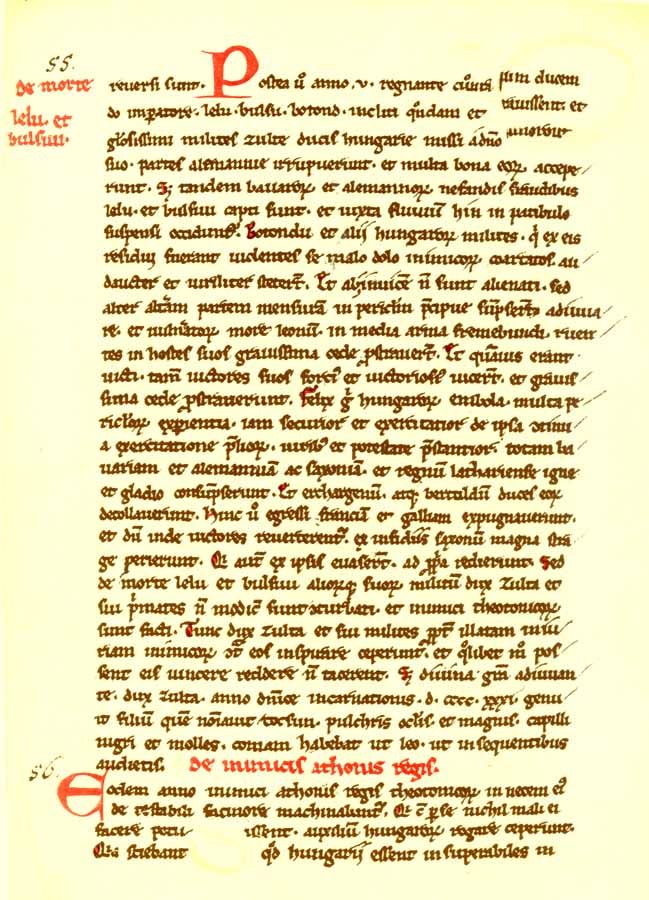 55.
de morte
lelu. et
bulsuu.
reuersi sunt. Postea ů anno .v. regnante cunra
do imꝑatore. lelu. bulsu. botond. incliti qͥdam et
gl̄osissimi milites zulte ducis hungarie missi a dn̄o
suo. partes alemannie irrupuerunt. et multa bona eoꝝ accepe/
runt. Sꝫ tandem bauaroꝝ et alemannoꝝ nefandis fraudibus
lelu. et bulsuu capti sunt. et iuxta fluuiū hin in patibulo
suspensi occidunt̉. Botondu et alij hungaroꝝ milites. qͥ ex eis
residui fuerant uidentes se malo dolo inimicoꝝ coartatos. au/
dacter et uiriliter steter̄t. Et abinuicē n̄ sunt alienati. sed
alter altam̄ partem mensurā in periclm̄ p̄cipue
re. et uulnatoꝝ more leonū. in media arma fremebundi. ruen/
tes in hostes suos grauissima cede ꝓstrauer̄t. Et quāuis erant
uicti. tam̄ uictores suos forciꝰ et uictoriosiꝰ uicer̄t. et grauis/
sima cede ꝓstrauerunt. Felix gͥ hungaroꝝ embola. multa pe/
ricl̄oꝝ exꝑientia. iam securior et exercitatior de ipsa ↄtinu/
a exercitatione p̄lioꝝ. uiribꝰ et potestate p̄stantior. totam ba/
uariam et alemanniam ac saxoniā. et regnum lathariense igne
et gladio consūpserunt. Et erchangenū. atqꝫ bertoldū duces eoꝝ
decollauerunt. Hinc ů egressi franciā et galliam expugnauerunt.
et dū inde uictores reuerterent̉. ex insidiis saxonum magna stra/
ge perierunt. Qͥ aut̄ ex ipsis euaser̄t. ad ꝓpͥa redierunt. Sed
de morte lelu et bulsuu aliorumqꝫ suoꝝ militū dux zulta et
sui pͥmates n̄ modicē sunt ↄturbati. et inimici theotonicoꝝ
sunt facti. Tunc dux zulta et sui milites ꝓpt̉ illatam iniu/
riam inimicoꝝ ↄtͣ eos inspirare ceperunt. et qͦlibet m̊ pos/
sent eis uincere reddere n̄ tacerent. Sꝫ diuina grā adiuuan/
te. dux zulta. anno dn̄ice incarnationis. d. cccc. xxxi. genu/
it filiū quē noīauit tocsun. pulchris oclīs. et magnis. capilli
nigri et molles. comam habebat ut leo. ut in sequentibus
audietis. de inimicis athonis regis.
56.
Eodem anno inimici athonis regis theotonicoꝝ in necem eiꝰ
de testabili facinore machinabant̉. Qͥ cū ꝑ se nichil mali ei
facere potuissent. auxiliū hungaroꝝ rogare ceperunt.
Qͥa sciebant qd̄ hungarij essent insuperabiles in